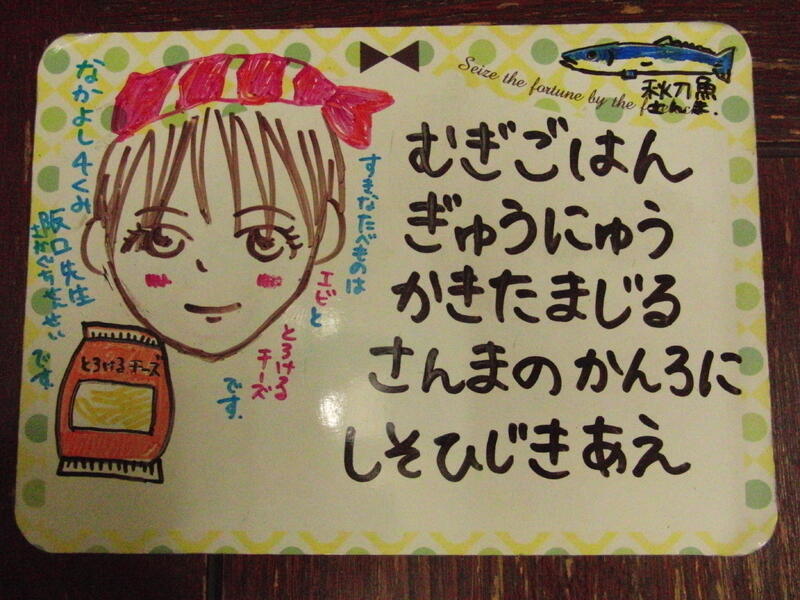 Seize the fortune by the f
秋刀魚
さんま.
むぎごはん
ぎゅうにゅう
かきたまじる
さんまのかんろに
しそひじきあえ
なかよし4くみ
阪口先生
さかぐちせんせい です。
すきなたべものは
エビと
とろける
チーズ
です.
とろけるチーズ